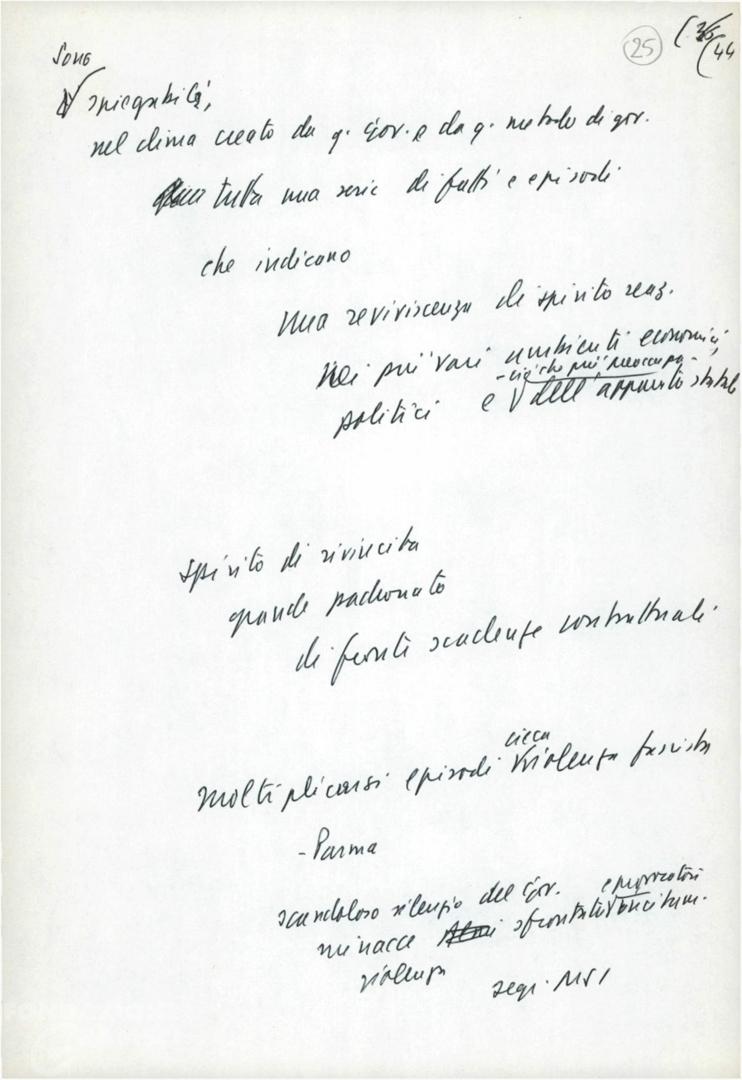 25
44
Sono
spiegabili,
nel clima creato da q. Gov. e da q. metodo di gov.
tutta una serie di fatti e episodi
che indicano
una reviviscenza di spirito reaz.
nei più vari ambienti economici,
- ciò che più preoccupa -
politici e dell'apparato statale
spirito di rivincita
grande padronato
di fronte scadenze contrattuali
cieca
moltiplicarsi episodi violenza fascista
- Parma
scandaloso silenzio del Gov.
e provocatori
minacce sfrontati incitam.
violenza segr. MSI